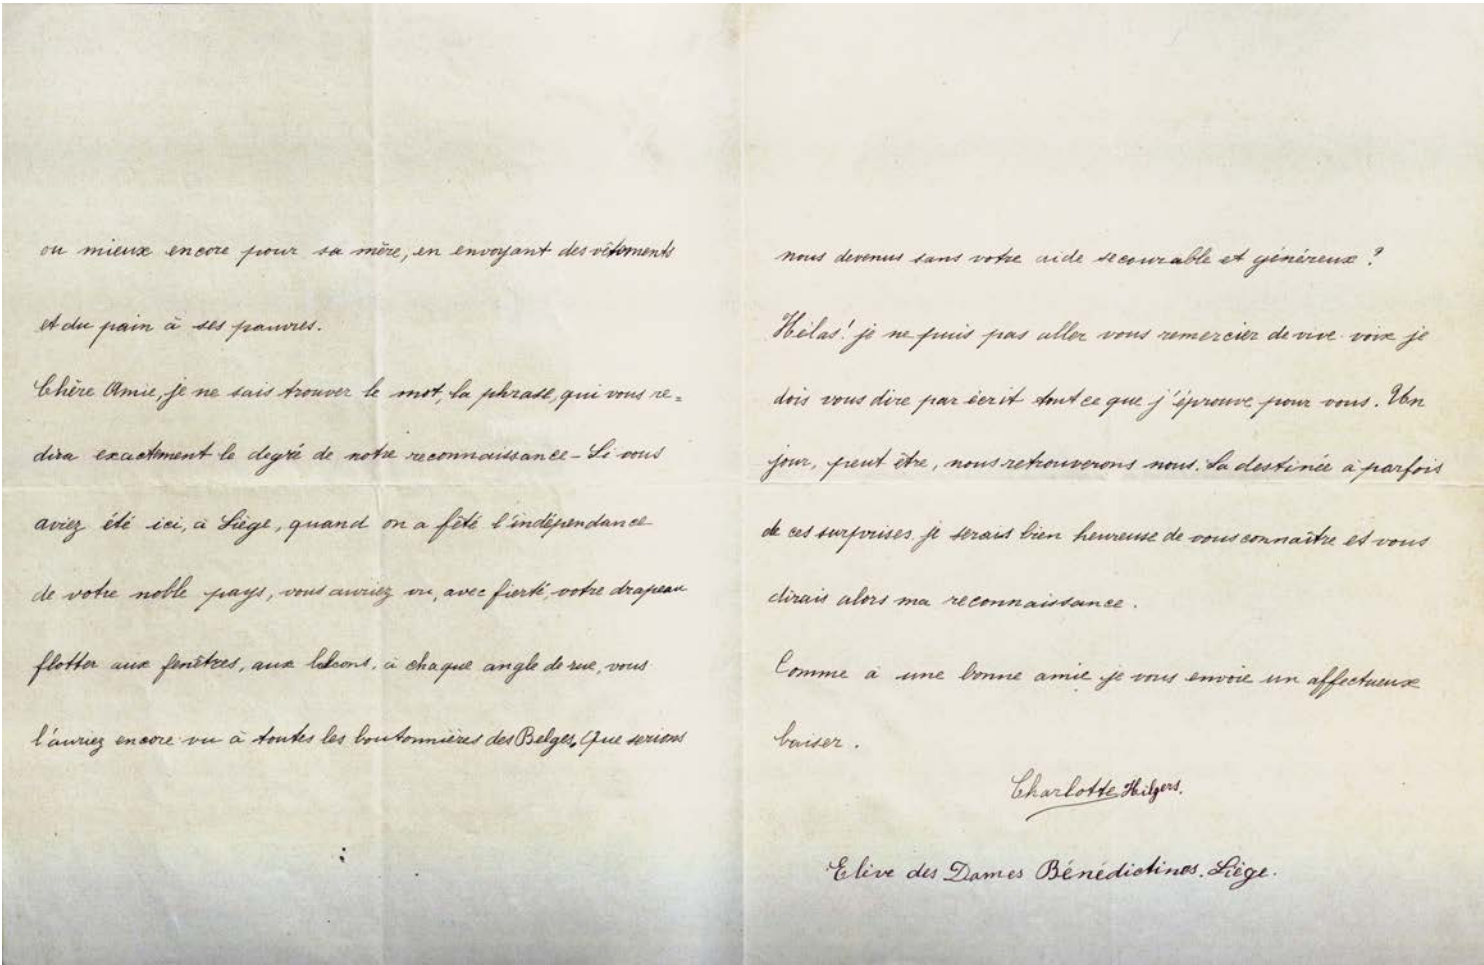 ou mieux encore pour sa mère, en envoyant des vêtements
et du pain à ses pauvres.
Chère Amie, je ne sais trouver le mot, la phrase, qui vous re=
dira exactement le degré de notre reconnaissance – Si vous
aviez été ici, à Liège, quand on a fêté l'indépendance
de votre noble pays, vous auriez vu, avec fierté, votre drapeau
flotter aux fenêtres, aux balcons, à chaque angle de rue, vous
l'auriez encore vu à toutes les boutonnières des Belges, Que serions
nous devenus sans votre aide secourable et généreux ?
Hélas! je ne puis pas aller vous remercier de vive voix je
dois vous dire par écrit tout ce que j'éprouve pour vous. Un
jour, peut être, nous retrouverons nous. La destinée à parfois
de ces surprises. je serais bien heureuse de vous connaître et vous
dirais alors ma reconnaissance.
Comme à une bonne amie je vous envoie un affectueux
baiser.
Charlotte Hilgers.
Elève des Dames Bénédictines. Liège.